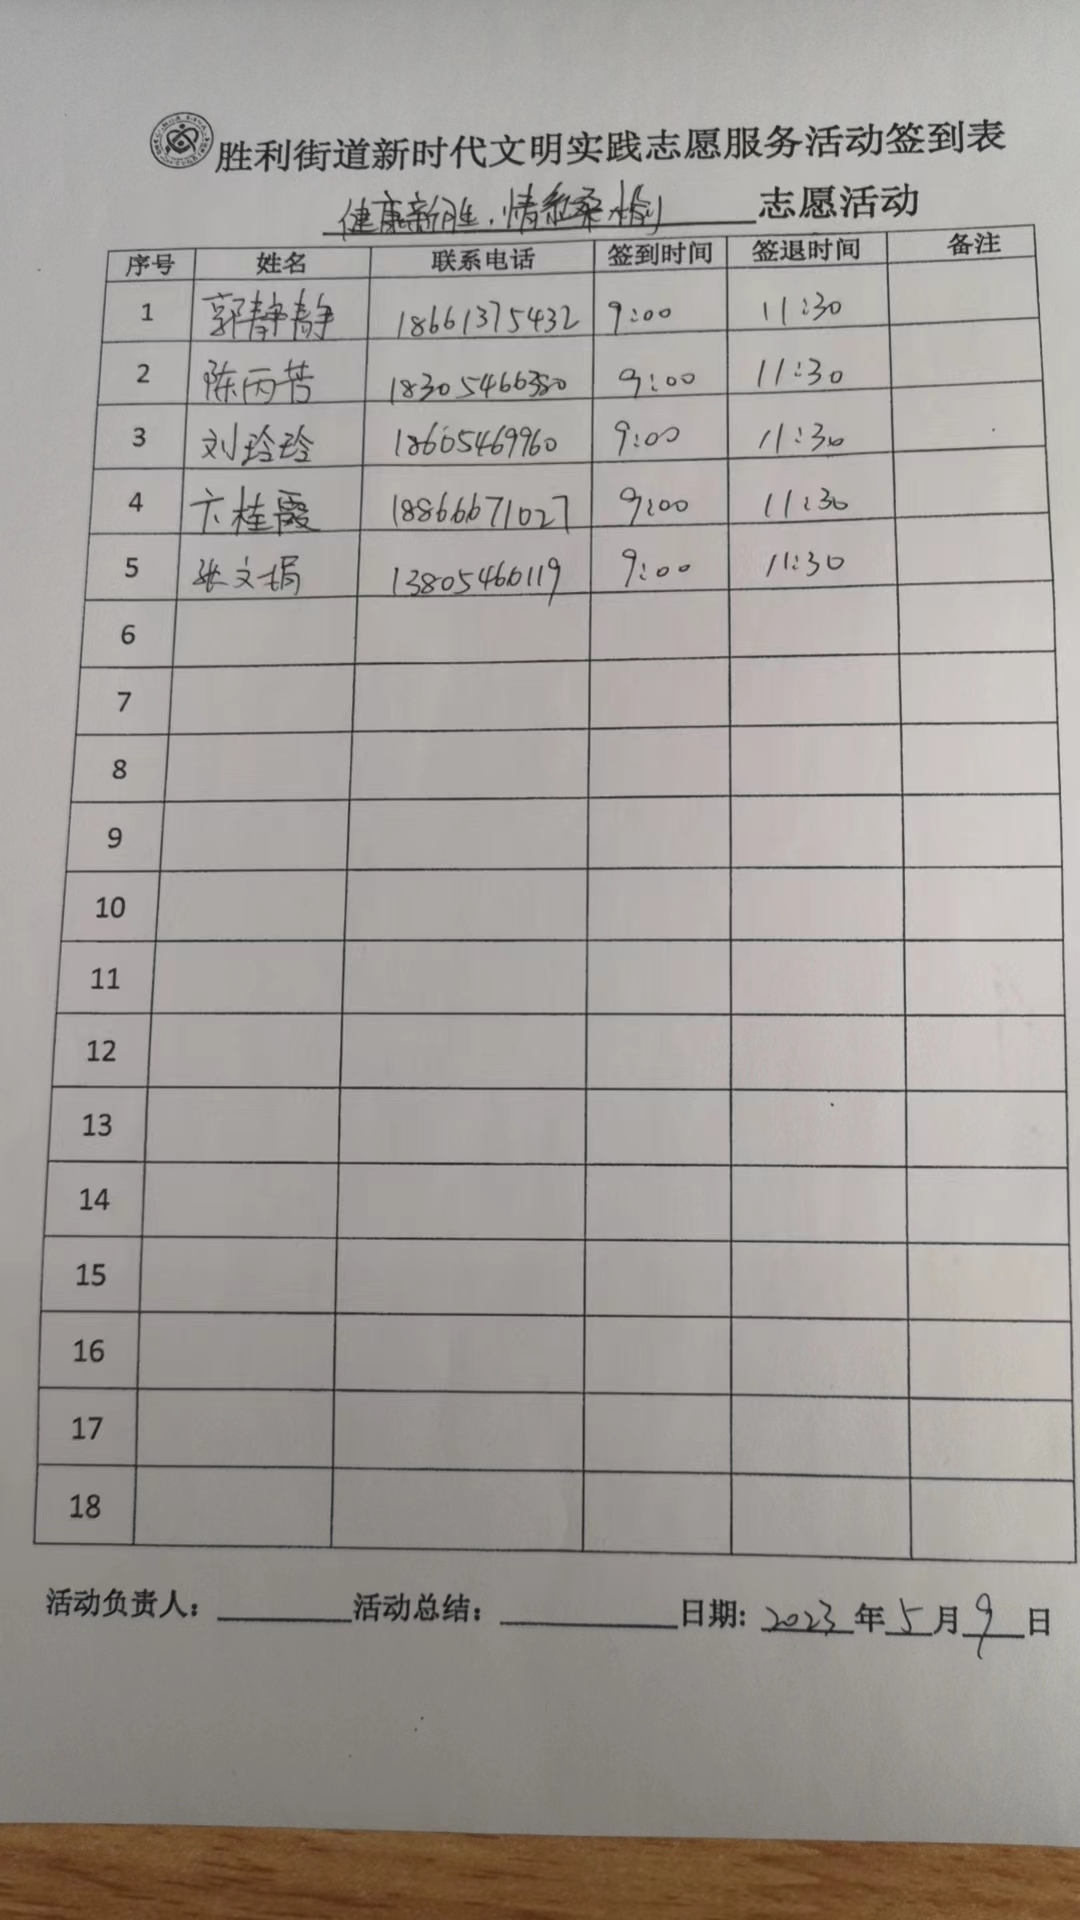 胜利街道新时代文明实践志愿服务活动签到表
健康新胜，情系桑榆 志愿活动
序号 姓名 联系电话 签到时间 签退时间 备注
1 郭静静 18661375432 9:00 11:30
2 陈丙芳 9:00 11:30
3 刘玲玲 18605469960 9:00 11:30
4 卞桂霞 18866671027 9:00 11:30
5 张文娟 13805460119 9:00 11:30
6
7
8
9
10
11
12
13
14
15
16
17
18
活动负责人： 活动总结： 日期: 2023 年 5 月 9 日